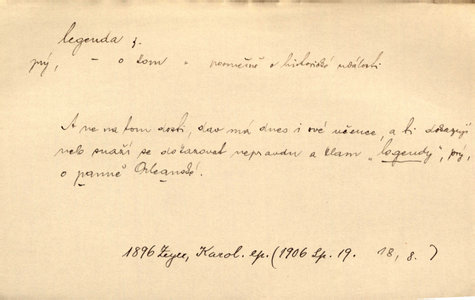 legenda f.
prý, – o tom „ poměrně o historické události
A ne na tom dosti, dav má dnes i své učence, a ti dokazují
neb snaží se dokazovat nepravdu a klam „legendy", prý,
o panně Orleanské.
1896 Zeyer, Karol. ep. (1906 Sp. 19. 18, 8.)